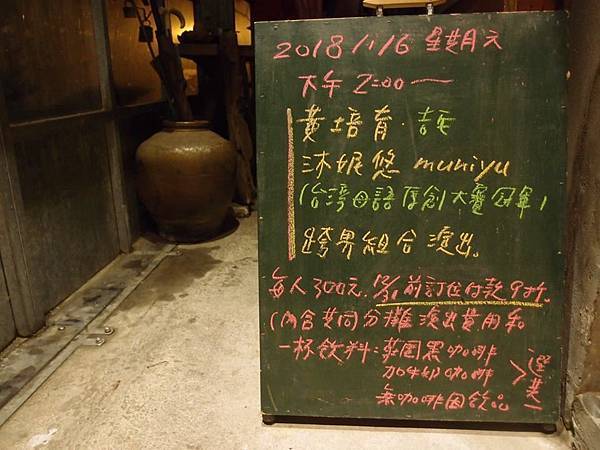 2018 1/6 星期六
下午 2:00 —
黃培育.吉玉
沐妮悠 muniyu
(台灣母語原創大賽冠軍)
跨界組合演出。
每人300元, 12/31前訂位付款9折.
(內含共同)分攤演出費用和
一杯飲料:菜園黑咖啡
加牛奶咖啡
無咖啡因飲品
>選其一